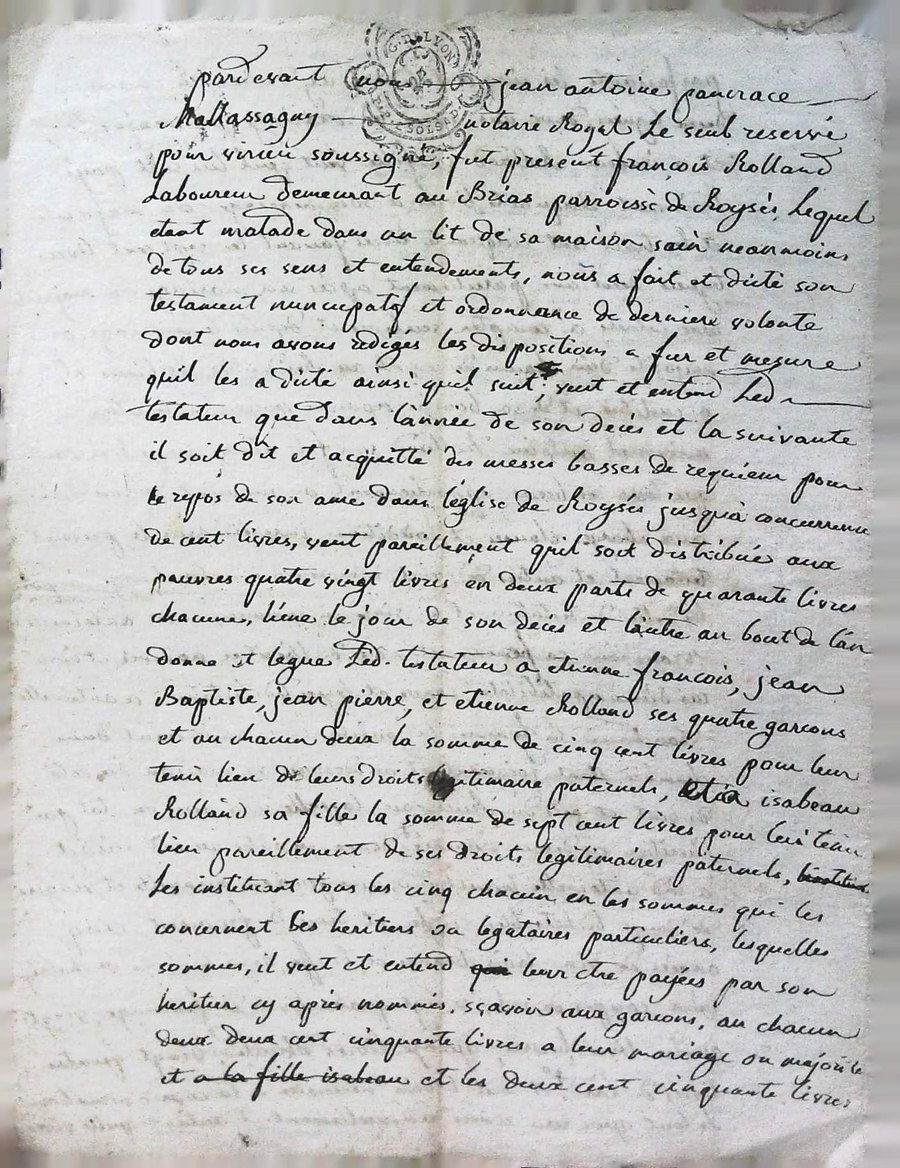 G. D. LYON
2 SOLS 8 D
pardevant nous jean antoine pancrace
Mallassagny notaire Royal Le seul reservé
pour virieu soussigné, fut present françois Rolland
Laboureur demeurant au Brias parroisse de Roysés, Lequel
etant malade dans un lit de sa maison sain neanmoins
de tous ses sens et entendements, nous a fait et dicté son
testament nuncupatif et ordonnance de derniere volonté
dont nous avons redigés les dispositions a fur et mesure
quil les a dicté ainsi quil suit, veut et entend Led
testateur que dans lannée de son decés et la suivante
il soit dit et acquitté des messes basses de requiem pour
le repos de son ame dans léglise de Roysés jusqua concurrence
de cent livres, veut pareillement quil soit distribué aux
pauvres quatre vingt livres en deux parts de quarante livres
chacune, lune le jour de son decés et lautre au bout de lan
donne et legue Led. testateur a etienne francois, jean
Baptiste, jean pierre, et etienne Rolland ses quatre garcons
et au chacun deux la somme de cinq cent livres pour leur
tenir lieu de leurs droits legitimaire paternels, et a isabeau
Rolland sa fille la somme de sept cent livres pour lui tenir
lieu pareillement de ses droits legitimaires paternels,
Les instituant tous les cinq chacun en les sommes qui les
concernent ses heritiers ou legataires particuliers, lesquelles
sommes, il veut et entend qui leur etre payées par son
heritier cy après nommés, sçavoir aux garcons, au chacun
deux deux cent cinquante livres a leur mariage ou majorité
et a la fille isabeau et les deux cent cinquante livres